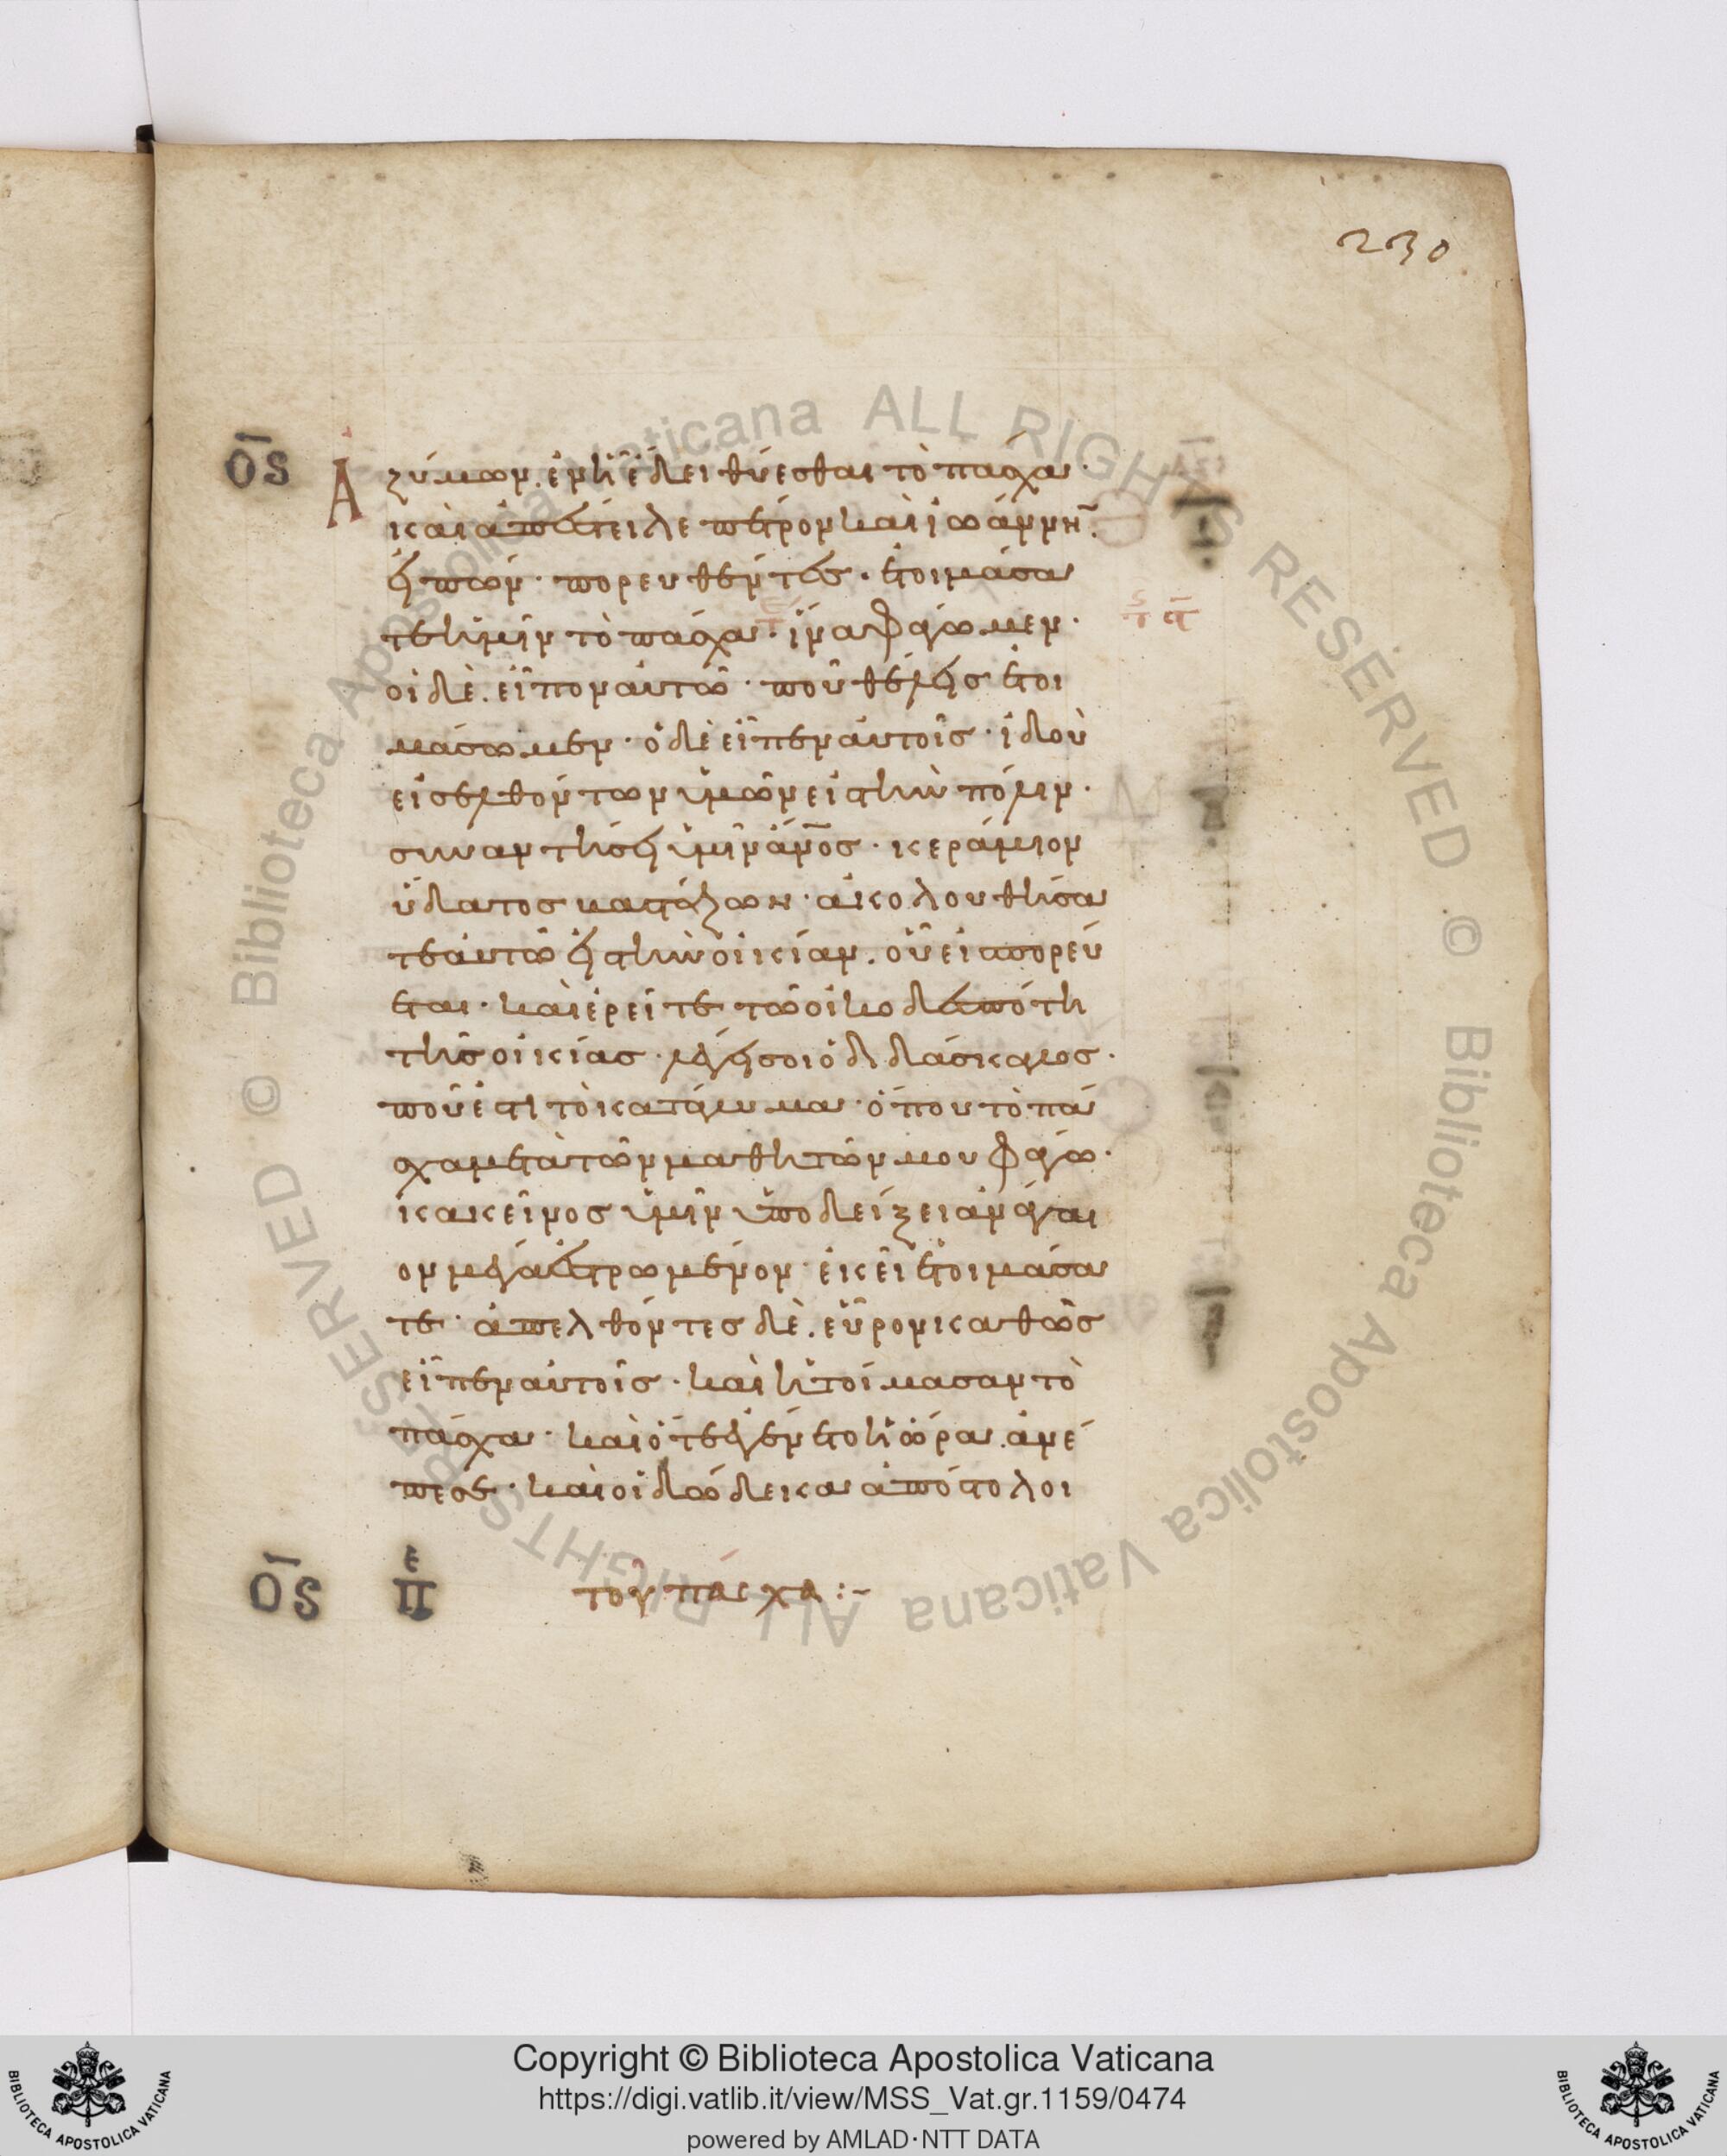 230
ο̅ς
Ἀ
ζύμων. ἐν ἧ ἔδει θύεσθαι τὸ πάσχα·
καὶ ἀπέστειλε πέτρον καὶ ἰωάννην
εἰπών· πορευθέντες· ἑτοιμάσα
τε ἡμῖν τὸ πάσχα· ἵνα φάγωμεν·
οἱ δὲ. εἶπον αὐτῶ· ποῦ θέλεις ἑτοι
μάσωμεν· ὁ δὲ εἶπεν αὐτοῖς· ἰδοὺ
εἰσελθόντων ὑμῶν εἰς τὴν πόλιν·
συναντήσει ὑμῖν ἄν̅ο̅ς· κεράμιον
ὕδατος βαστάζων· ἀκολουθήσα
τε αὐτῶ εἰς τὴν οἰκίαν. οὗ εἰσπορεύ
εται· καὶ ἐρεῖτε τῶ οἰκοδεσπότη
τῆς οἰκίας· λέγει σοι ὁ διδάσκαλος·
ποῦ ἐστι τὸ κατάλυμα· ὅπου τὸ πά
σχα μετὰ τῶν μαθητῶν μου φάγω·
κακεῖνος ὑμῖν ὑποδείξει ἀνάγαι
ον μέγα ἐστρωμένον· ἐκεῖ ἑτοιμάσα
τε· ἀπελθόντες δὲ. εὗρον καθῶς
εἶπεν αὐτοῖς· καὶ ἡτοίμασαν τὸ
πάσχα· καὶ ὅτε ἐγένετο ἡ ὥρα. ἀνέ
πεσε· καὶ οἱ δώδεκα ἀπόστολοι
ο̅ς
τοῦ πάσχα :-
Copyright © Biblioteca Apostolica Vaticana
https://digi.vatlib.it/view/MSS_Vat.gr.1159/0474
powered by AMLAD·NTT DATA
BIBLIOTECA APOSTOLICA VATICANA
BIBLIOTECA APOSTOLICA VATICANA
Biblioteca Apostolica Vaticana ALL RIGHTS RESERVED ©
Biblioteca Apostolica Vaticana ALL RIGHTS RESERVED ©